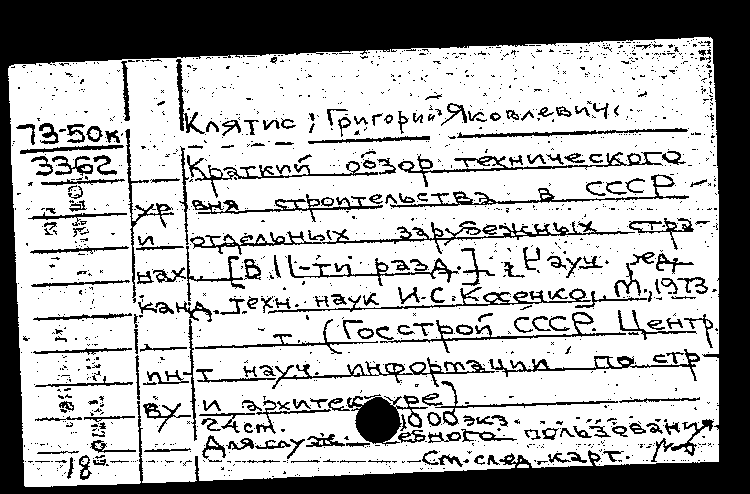 73-50к
3362
Клятис, Григорий Яковлевич.
Краткий обзор технического
уровня строительства в СССР
и отдельных зарубежных стра-
нах. [В 11-ти разд.]. Науч. ред.
канд. техн. наук И.С. Косенко. М., 1973.
т. (Госстрой СССР. Центр.
ин-т науч. информации по стр-
ву и архитектуре).
24 cm. 1000 экз.
Для служебного пользования.
См. след. карт.
18